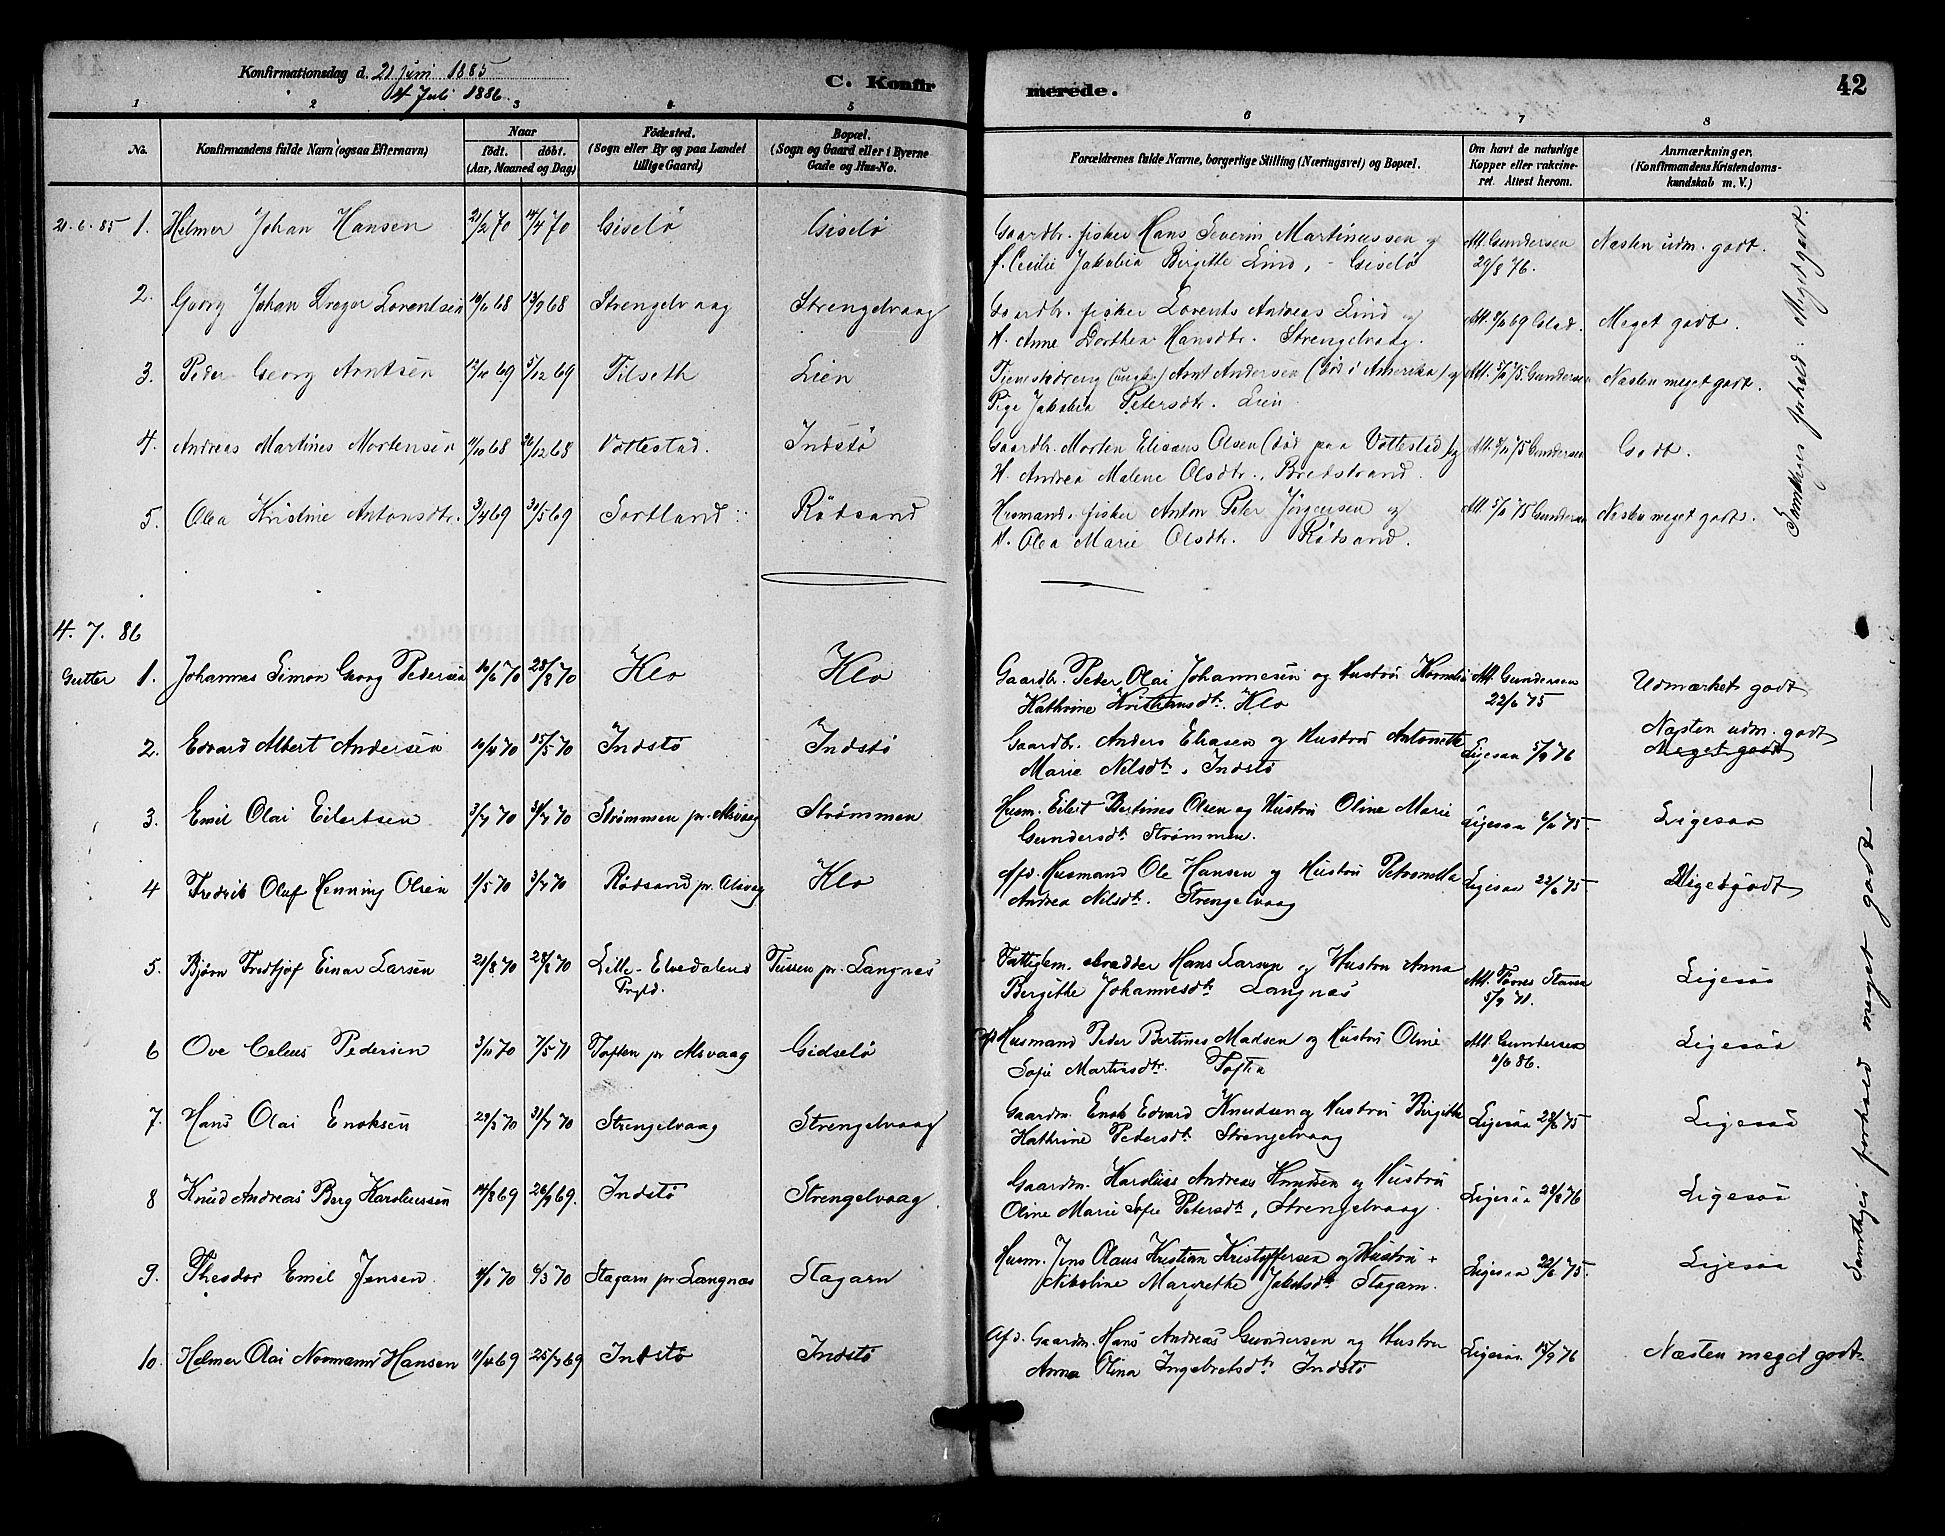 Konfirmationsdag d. 21 Juni 1885
4 Juli 1886
C. Konfirmerede.
42
1 2 3 4 5 6 7 8
No.
Konfirmandens fulde Navn (ogsaa Efternavn)
Naar
födt. döbt.
(Aar, Maaned og Dag)
Födested.
(Sogn eller By og paa Landet
tillige Gaard)
Bopæl.
(Sogn og Gaard eller i Byerne
Gade og Hus-No.
Forældrenes fulde Navne, borgerlige Stilling (Næringsvei) og Bopæl.
Om havt de naturlige
Kopper eller vakcine-
ret. Attest herom.
Anmærkninger,
(Konfirmandens Kristendoms-
kundskab m. V.)
21.6.85 1. Helmer Johan Hansen 21/2 70 14/4 70 Giselö Giselö Gaardbr. fisker Hans Severin Martinussen og Att. Gundersen Næsten udm. godt.
f. Cecilie Jakobia Bergitte Lind, - Giselö 29/8 76.
2. Georg Johan Dreyer Lorentsen 10/6 68 13/9 68 Strengelvaag Strengelvaag Gaardbr. fisker Lorents Andreas Lind og Meget godt.
H. Anne Dorthea Hansdtr. Strengelvaag.
3. Peder Georg Arntsen 12/10 69 5/12 69 Tilseth Lien Tjenestedreng (ungk.) Arnt Andersen (död i Amerika) og Gundersen Næsten meget godt.
Pige Jakobia Petersdtr. Lien.
4. Andreas Martines Mortensen 11/10 68 26/12 68 Vottestad. Indstö Gaardbr. Morten Eliseus Olsen (död paa Vottestad) og Gundersen Godt.
H. Andrea Malene Olsdtr., Bredstrand.
5. Olea Kristine Antonsdtr. 3/4 69 30/5 69 Sortland Rödsand Husmand, fisker Anton Peter Jörgensen og Gundersen Næsten meget godt.
H. Olea Marie Olsdtr. Rödsand.
Samtliges forhold: Meget godt.
4. 7. 86
Gutter 1. Johannes Simon Georg Pedersen 10/6 70 28/8 70 Klo Klo Gaardbr. Peder Olai Johannesen og Hustru Kornelia Att. Gundersen Udmærket godt
Kathrine Kristiansdtr. Klo 22/6 75
2. Edvard Albert Andersen 10/4 70 15/5 70 Indstø Indstø Gaardbr. Anders Eliasen og Hustru Antonette Ligesaa 5/9 76 Næsten udm. godt
Marie Nilsdtr, Indstø Meget godt
3. Emil Olai Eilertsen 3/7 70 31/7 70 Strømmen pr. Alsvaag Strømmen Husm. Eilert Bertines Olsen og Hustru Oline Marie Ligesaa 75. Ligesaa
Gundersdtr Strømmen.
4 Fredrik Oluf Henning Olsen 1/5 70 3/7 70 Rödsand pr. Alsvaag Klo Afd. Husmand Ole Hansen og Hustru Petronella Ligesaa 22/6 75 Meget godt
Andrea Nilsdtr. Strengelvaag
5. Bjørn Fredtjof Einar Larsen 21/8 70 28/8 70 Lille-Elvedalens Tussen pr. Langnæs Fattiglem. skrædder Hans Larsen og Hustru Anna Ligesaa
Prgld. Bergithe Johannesdtr Langnæs 5/9 71.
6 Ove Celius Pedersen 3/11 70 7/5 71 Toften pr Alsvaag Gidselö Husmand Peder Bertines Madsen og Hustru Oline Att. Gundersen Ligesaa
Sofie Martinsdtr. Toften 86.
7. Hans Olai Enoksen 29/3 70 31/7 70 Strengelvaag Strengelvaag Gaardm. Enok Edvard Knudsen og Hustru Birgitte Ligesaa 75 Ligesaa
Kathrine Pedersdtr Strengelvaag
8 Knud Andreas Berg Karoliussen 14/8 69 26/9 69. Indstø Strengelvaag Gaardm. Karolius Andreas Knudsen og Hustru Ligesaa 76 Ligesaa
Oline Marie Sofie Petersdtr, Strengelvaag.
9. Theodor Emil Jensen 11/1 70 6/3 70 Stagarn pr. Langnæs Stagarn Husm. Jens Olaus Kristian Kristoffersen og Hustru Ligesaa 22/6 75. Ligesaa
Nikoline Margrethe Jakobsdtr Stagarn.
10. Helmer Olai Normann Hansen 11/4 69 25/7 69 Indstø Indstø Afd. Gaardm. Hans Andreas Gundersen og Hustru Ligesaa 76 Næsten meget godt
Anna Olina Ingebretsdtr Indstø
Samtliges forhold meget godt